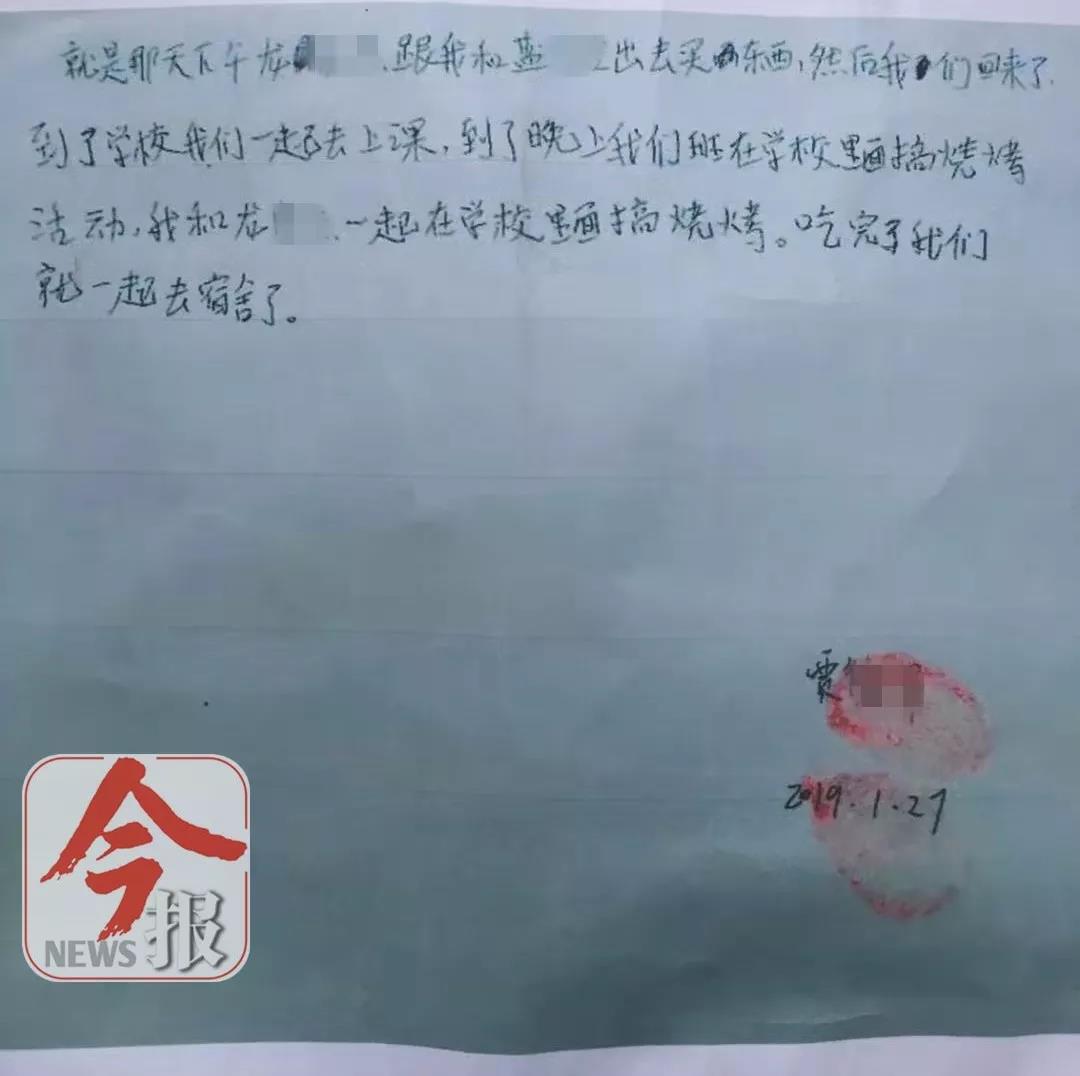 就是那天下午龙 跟我和盖 出去买东西,然后我们回来了.
到了学校我们一起去上课,到了晚上我们班在学校里面搞烧烤
活动,我和龙 一起在学校里面搞烧烤。吃完了我们
就一起去宿舍了。
贾
2019.1.27
今报
NEWS